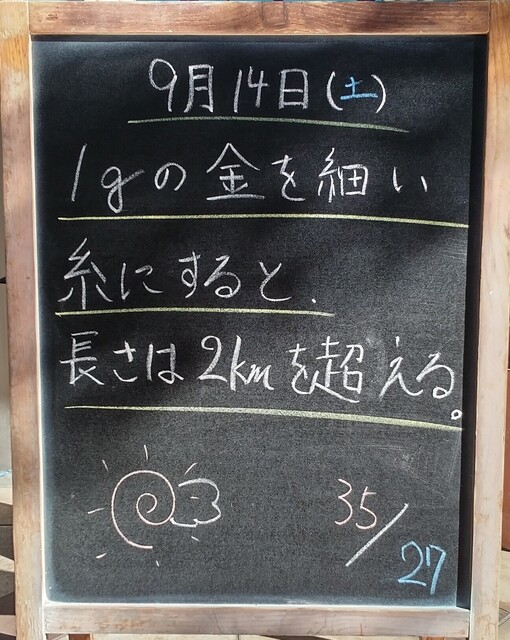 9月14日(土)
1gの金を細い
糸にすると.
長さは2kmを超える。
35/27